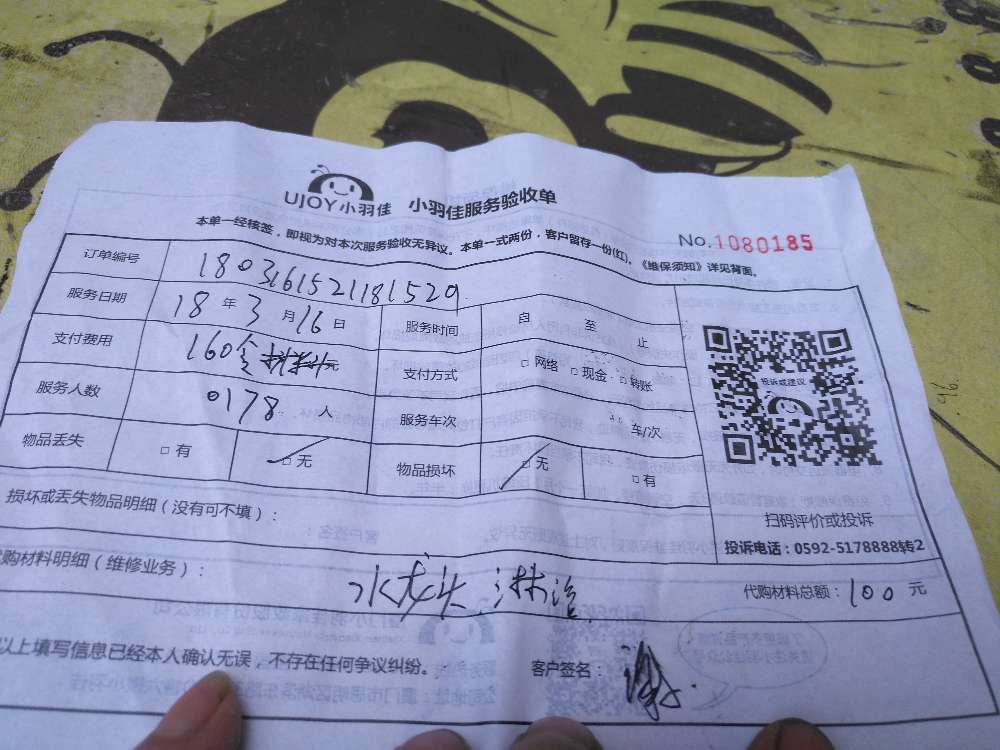 UJOY小羽佳 小羽佳服务验收单
本单一经核签，即视为对本次服务验收无异议。本单一式两份，客户留存一份(红)。《维保须知》详见背面。
No.1080185
订单编号 1803161521181529
服务日期 18年3月16日 服务时间 自 至 止
支付费用 160 元 支付方式 □网络 □现金 □转账
服务人数 0178 人 服务车次 车/次
物品丢失 □有 □无 物品损坏 □无 □有
投诉或建议
扫码评价或投诉
投诉电话：0592-5178888转2
损坏或丢失物品明细（没有可不填）：
购材料明细（维修业务）： 水龙头 代购材料总额：100元
以上填写信息已经本人确认无误，不存在任何争议纠纷。 客户签名：